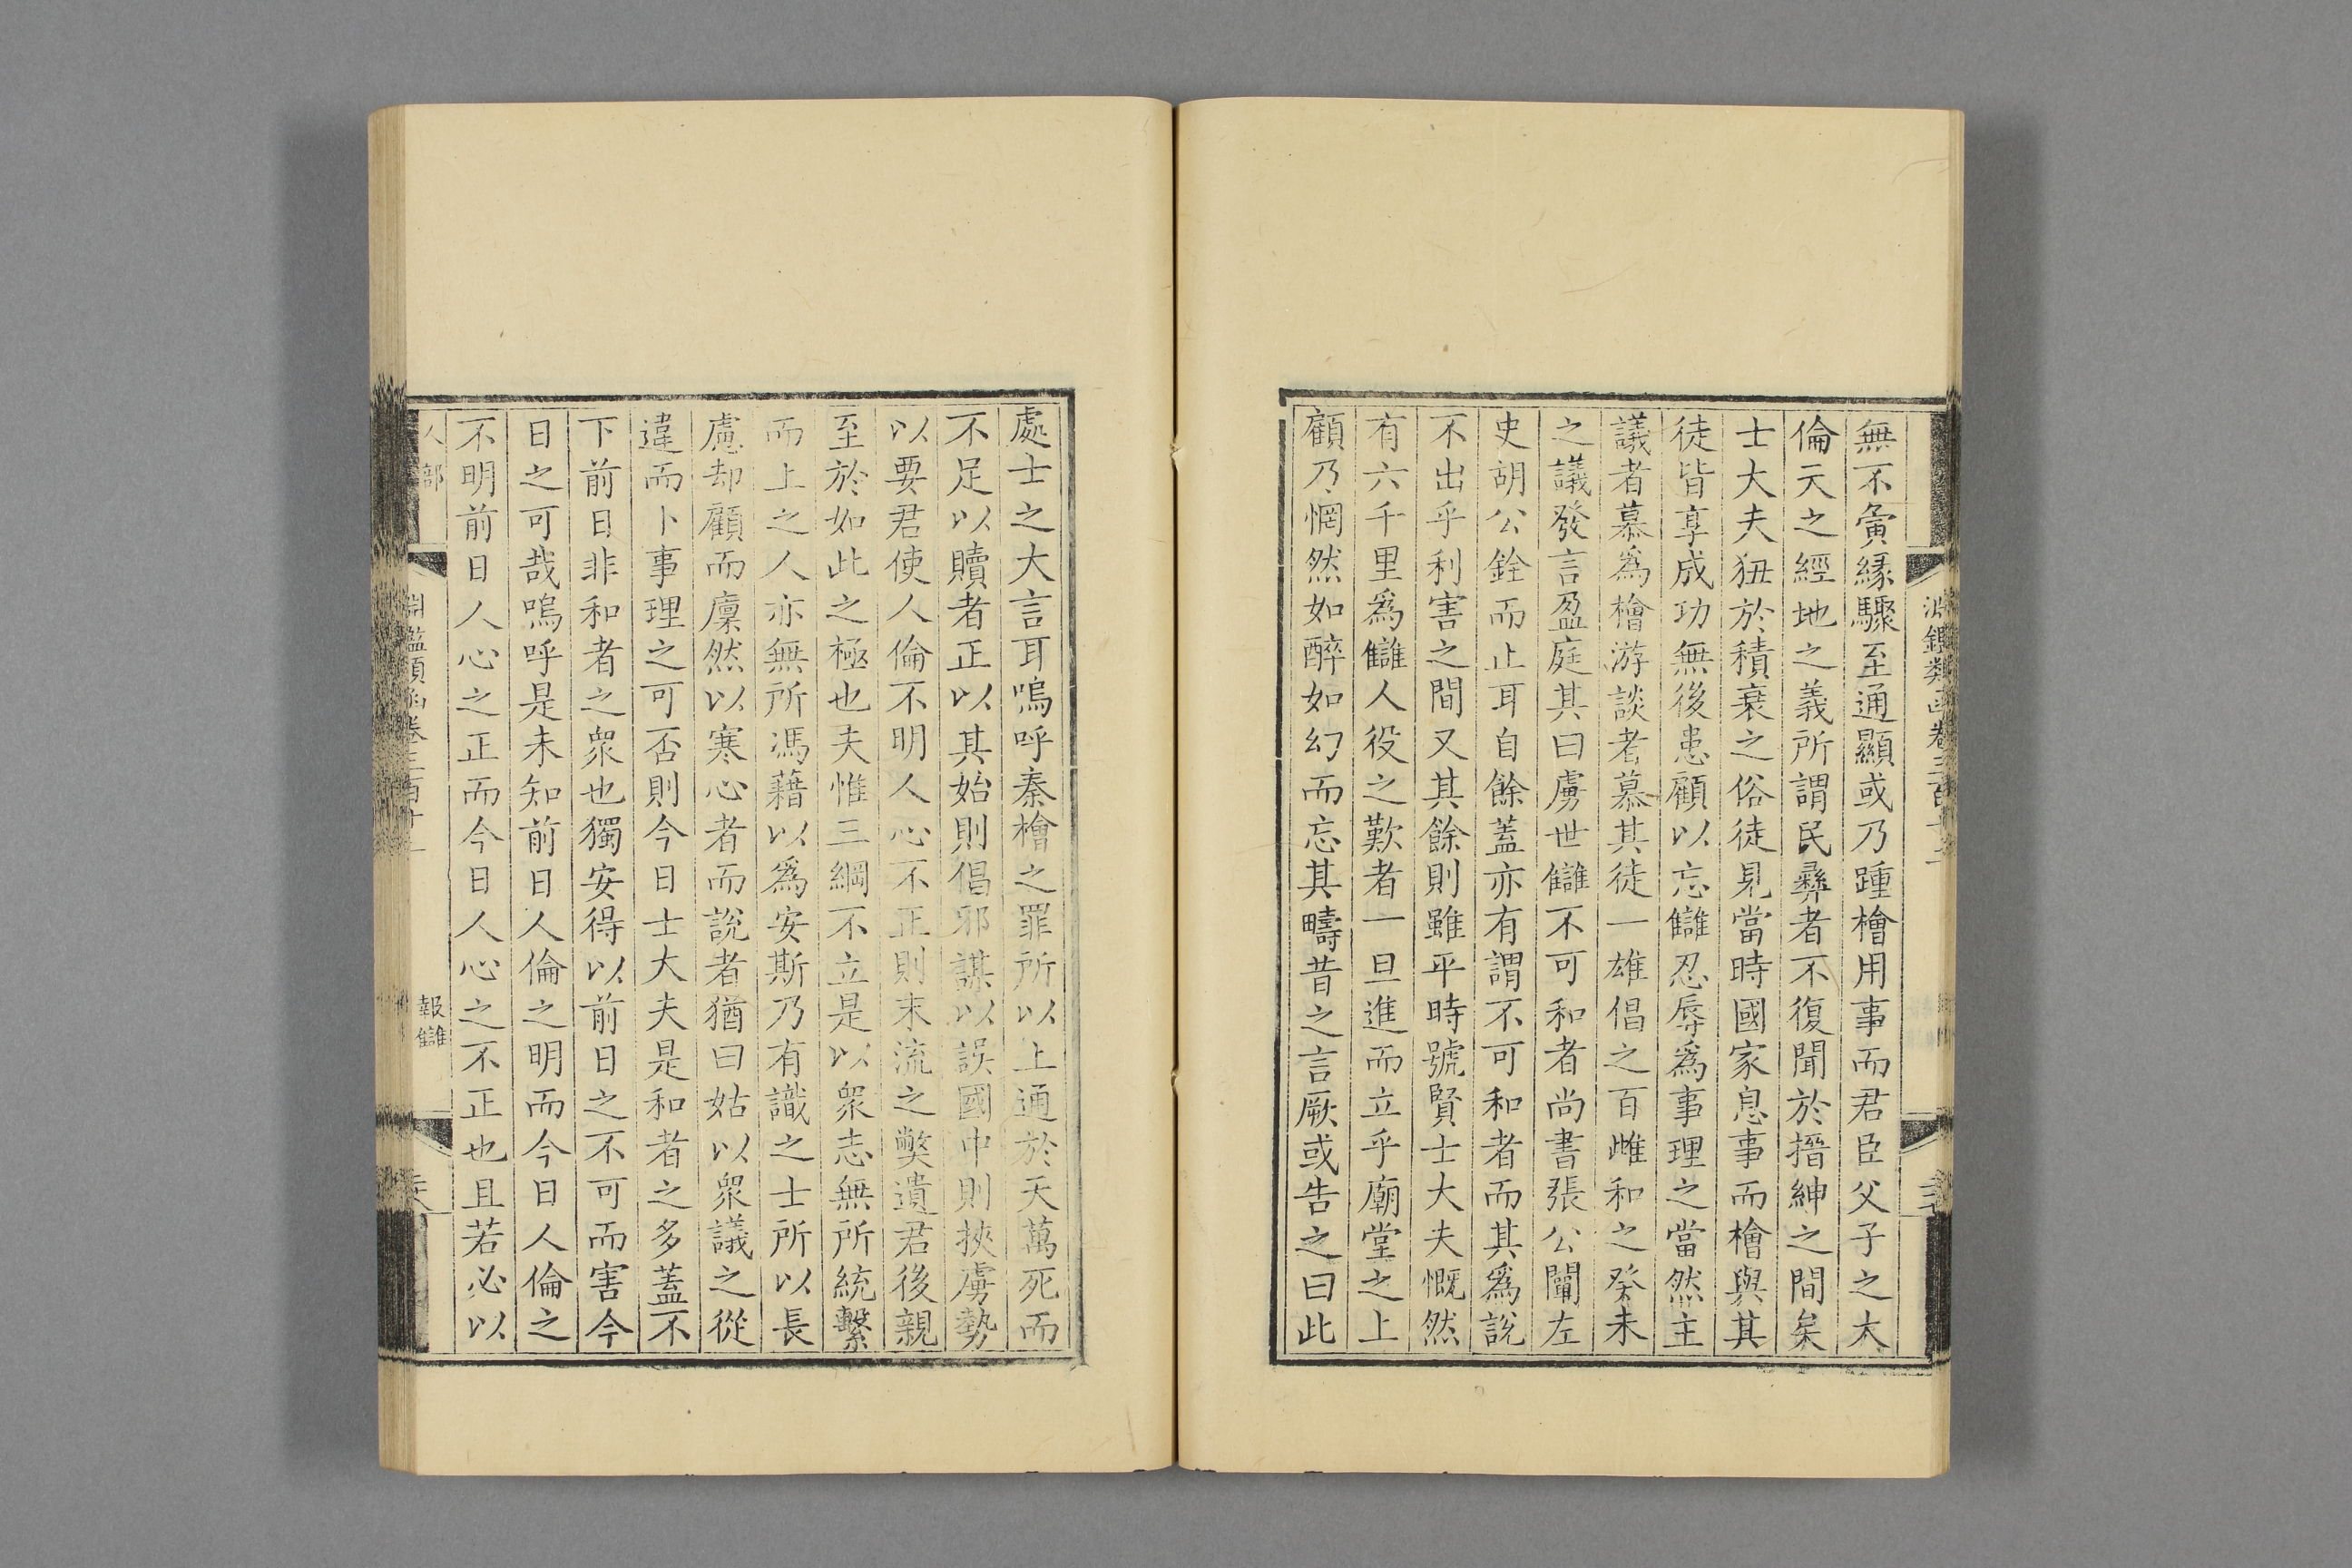 無不夤縁驟至通顯或乃踵檜用事而君臣父子之大
倫天之經地之義所謂民彞者不復聞於搢紳之間矣
士大夫狃於積衰之俗徒見當時國家息事而檜與其
徒皆享成功無後患顧以忘讎忍辱爲事理之當然主
議者慕爲檜游談者慕其徒一雄倡之百雌和之癸未
之議發言盈庭其曰虜世讎不可和者尚書張公闡左
史胡公銓而止耳自餘蓋亦有謂不可和者而其爲說
不出乎利害之間又其餘則雖平時號賢士大夫慨然
有六千里爲讎人役之歎者一旦進而立乎廟堂之上
顧乃惘然如醉如幻而忘其疇昔之言厥或告之曰此
處士之大言耳嗚呼秦檜之罪所以上通於天萬死而
不足以贖者正以其始則倡邪謀以誤國中則挾虜勢
以要君使人倫不明人心不正則末流之獘遺君後親
至於如此之極也夫惟三綱不立是以衆志無所統繫
而上之人亦無所馮藉以爲安斯乃有識之士所以長
慮却顧而廩然以寒心者而說者猶曰姑以衆議之從
違而卜事理之可否則今日士大夫是和者之多蓋不
下前日非和者之衆也獨安得以前日之不可而害今
日之可哉嗚呼是未知前日人倫之明而今日人倫之
不明前日人心之正而今日人心之不正也且若必以
人部
淵鑑類函卷三百十
報讎